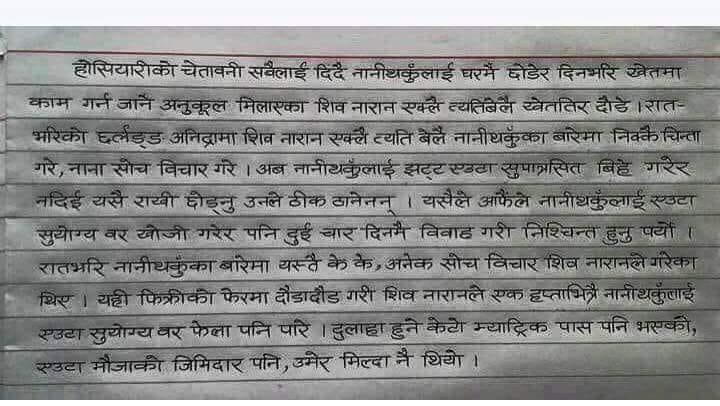 होसियारीको चेतावनी सबैलाई दिँदै नानीथकुँलाई घरमै छोडेर दिनभरि खेतमा
काम गर्न जानै अनुकूल मिलाएका शिव नारान एक्लै त्यतिबेलै खेततिर दौडे । रात-
भरिको छर्लङ्ङ अनिद्रामा शिव नारान एक्लै त्यति बेलै नानीथकुँका बारेमा निक्कै चिन्ता
गरे, नाना सोच विचार गरे । अब नानीथकुँलाई झट्ट एउटा सुपात्रसित बिहे गरेर
नदिई यसै राखी छोड्नु उनले ठीक ठानेनन् । यसैले आफैंले नानीथकुँलाई एउटा
सुयोग्य वर खोजी गरेर पनि दुई चार दिनमै विवाह गरी निश्चिन्त हुनु पर्यो ।
रातभरि नानीथकुँका बारेमा यस्तै के के, अनेक सोच विचार शिव नारानले गरेका
थिए । यही फिक्रीको फेरमा दौडादौड गरी शिव नारानले एक हप्ताभित्रै नानीथकुँलाई
एउटा सुयोग्य वर फेला पनि पारे । दुलाहा हुने केटो म्याट्रिक पास पनि भएको,
एउटा मौजाको जिमिदार पनि, उमेर मिल्दा नै थियो ।